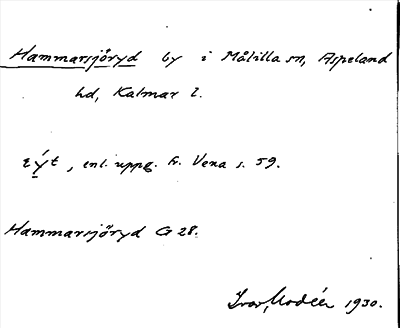 Hammarsjöryd by i Målilla sn, Aspeland
hd, Kalmar l.
rýt, enl. uppg. fr. Vena s. 59.
Hammarsjöryd G 28.
Ivar Modéer 1930.